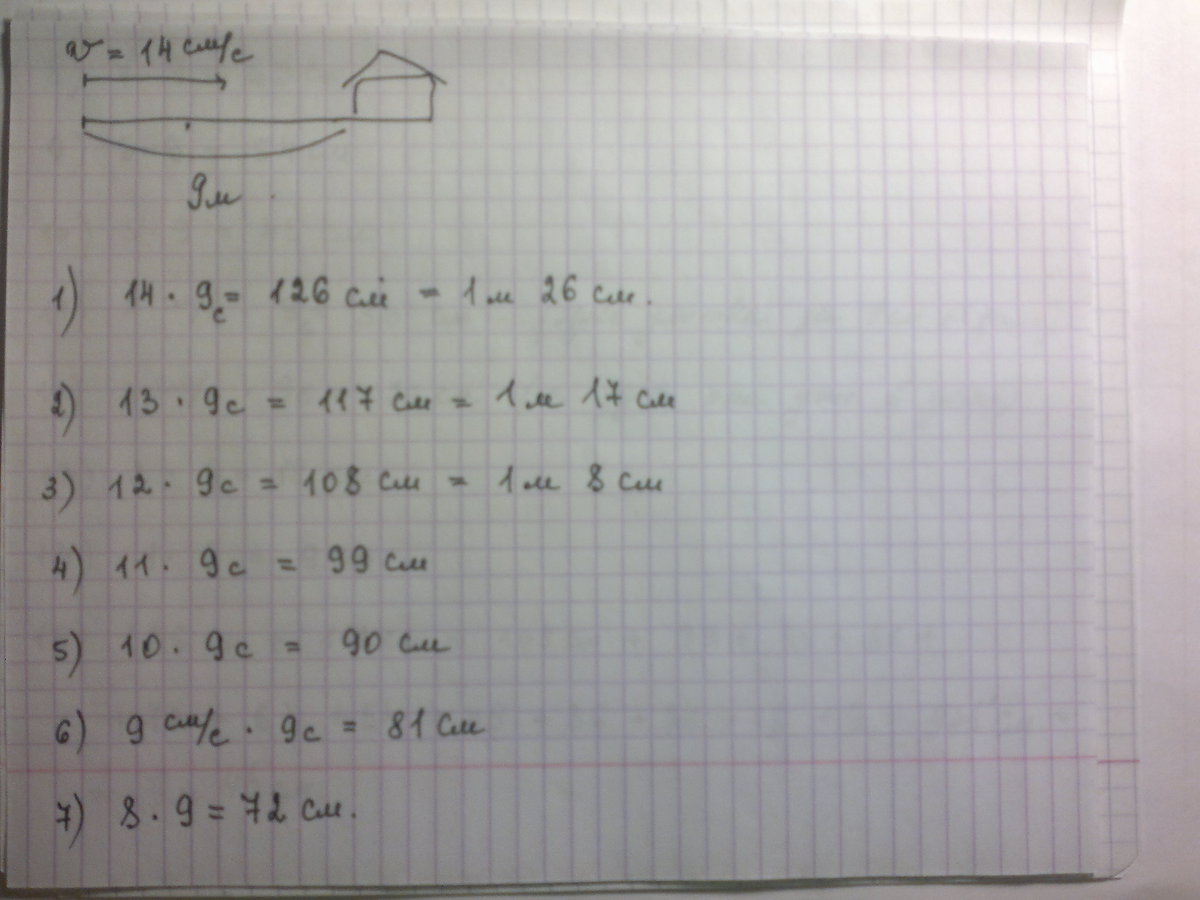 v = 14 см/с
9м
1) 14 · 9с = 126 см = 1 м 26 см.
2) 13 · 9с = 117 см = 1 м 17 см
3) 12 · 9с = 108 см = 1 м 8 см
4) 11 · 9с = 99 см
5) 10 · 9с = 90 см
6) 9 см/с · 9с = 81 см
7) 8 · 9 = 72 см.